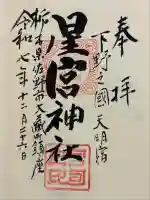 奉拝
下野之國 天明宿
星宮神社
栃木県佐野市大蔵町鎮座
令和七年十二月二十六日